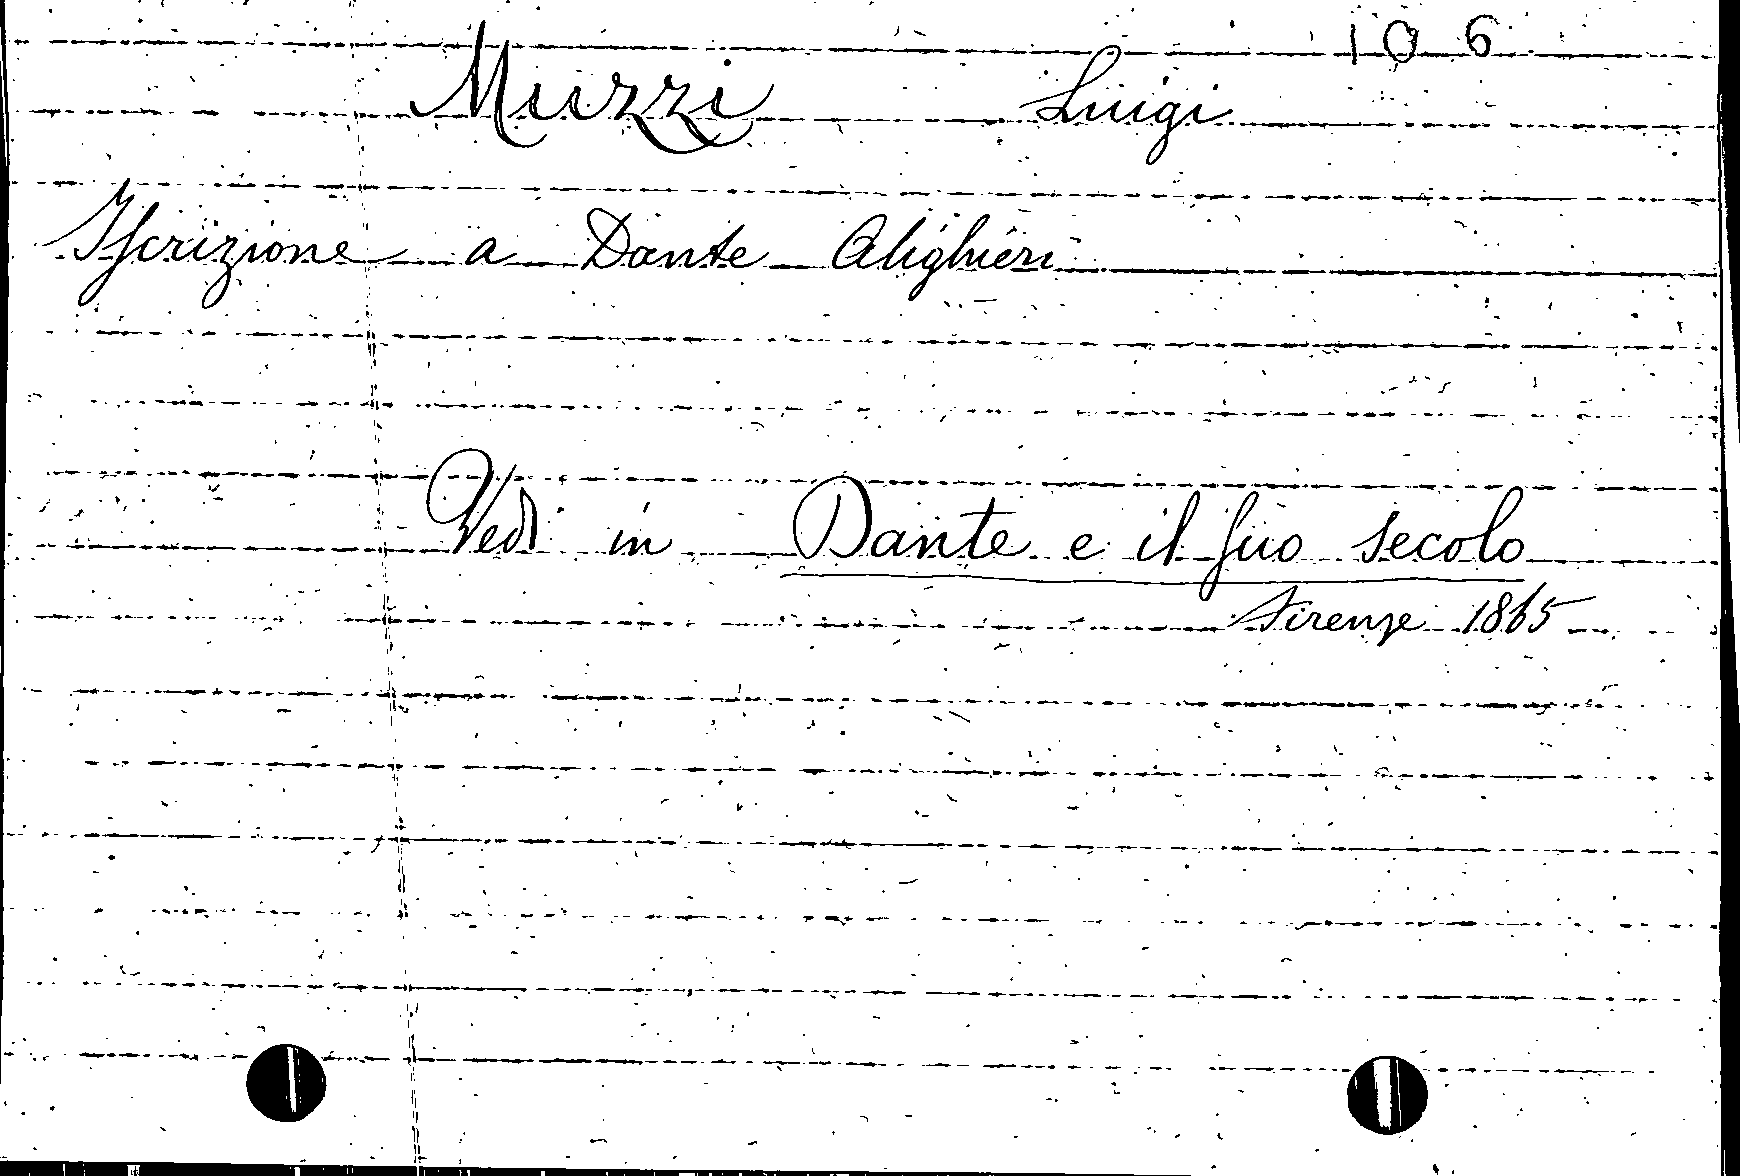 106
Muzzi Luigi
Iscrizione a Dante Alighieri
Vedi in Dante e il suo secolo
Firenze 1865